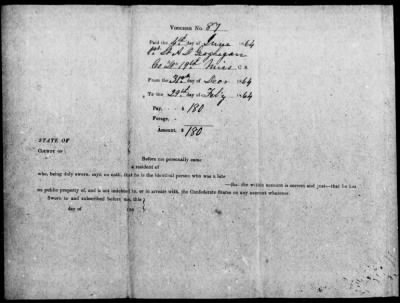 Voucher No. 87
Paid the 4th day of June 1864
1st Lt A. D. Geoghegan
Co "H" 19th Miss C. S.
From the 31st day of Decr 1864
To the 29th day of Feby 1864
Pay, - - $ 180
Forage, -
Amount, $ 180
STATE OF
COUNTY OF
Before me personally came
a resident of
who, being duly sworn, says, on oath, that he is the identical person who was a late
—that the within account is correct and just—that he has
no public property of, and is not indebted to, or in arrears with, the Confederate States on any account whatever.
Sworn to and subscribed before me, this
day of 186